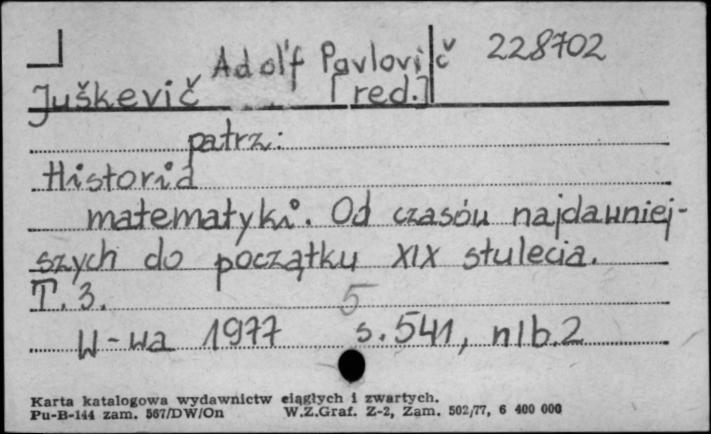 Adol'f Pavlovič 228702
Juškevič [red.]
patrz:
Historia
matematyki. Od czasów najdawniej-
szych do początku XIX stulecia.
T. 3. 5
W-wa 1977 s. 541, nlb. 2
Karta katalogowa wydawnictw ciągłych i zwartych.
Pu-B-144 zam. 567/DW/On W.Z.Graf. Z-2, Zam. 502/77, 6 400 000